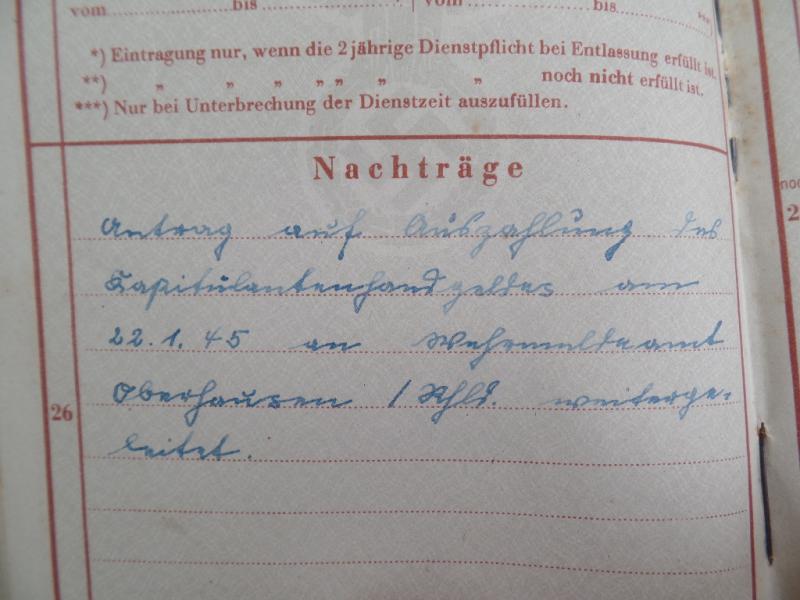 vom bis vom bis ***)
*) Eintragung nur, wenn die 2 jährige Dienstpflicht bei Entlassung erfüllt ist.
**) „ „ „ „ „ „ „ noch nicht erfüllt ist.
***) Nur bei Unterbrechung der Dienstzeit auszufüllen.
Nachträge
Antrag auf Auszahlung des
Kapitulantenhandgeldes am
22.1.45 an Wehrmeldeamt
Oberhausen / Rhld. weiterge-
leitet.
26
noc
2